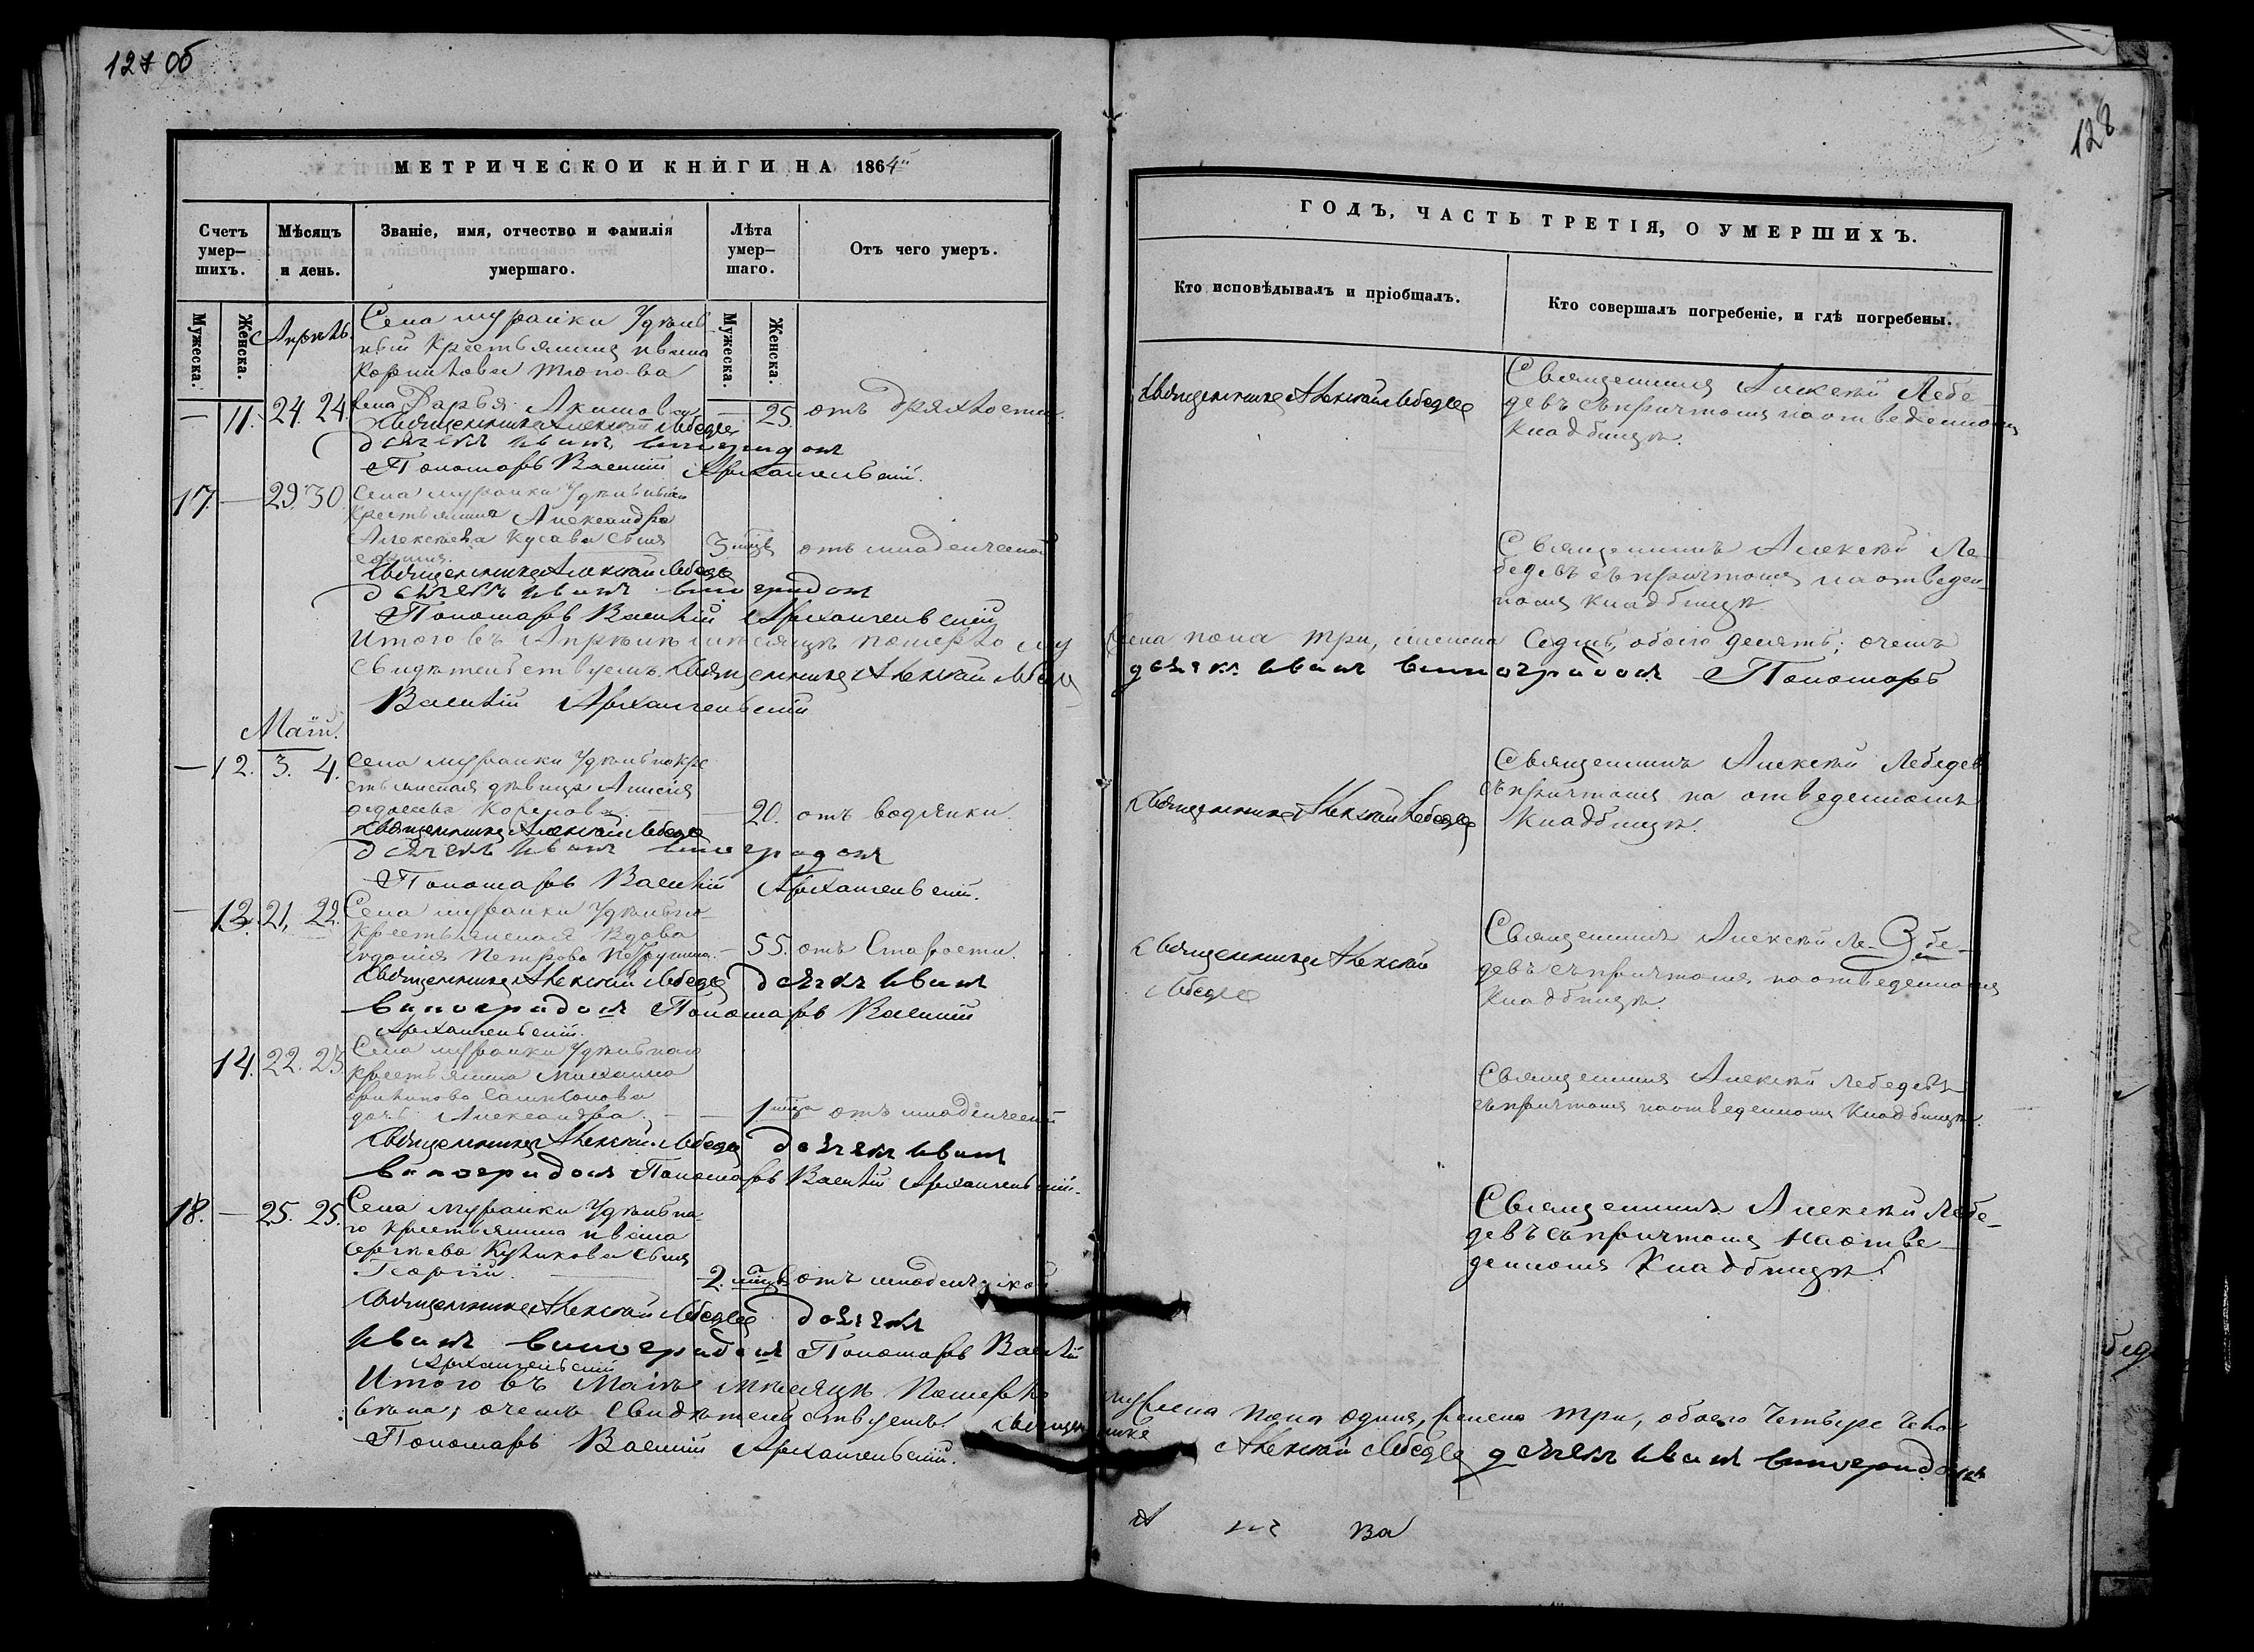 127 об
МЕТРИЧЕСКОЙ КНИГИ НА 1864й
Счетъ умер-шихъ.
Мѣсяцъ и день.
Званіе, имя, отчество и фамилія умершаго.
Лѣта умер-шаго.
Отъ чего умеръ.
Мужеска.
Женска.
Апрѣль
Мужеска.
Женска.
Села муранки Удѣль
ный Крестьянина Ивана
Корнилова
— 11. 24. 24. жена Дарья Акимова — 25. отъ дряхлости.
Священникъ Алексѣй Лебедев
дьячекъ иванъ виноградовъ
Пономарь Василій Архангельскій.
17. — 29. 30. Села муранки Удѣльнаго
Крестьянина Александра
Алексѣева Кусава сынъ 3 мѣсц отъ младенческой
Священникъ Алексѣй Лебедев
дьячекъ иванъ виноградовъ
Пономарь Василій Архангельскій
Итого въ Апрѣлѣ мѣсяцѣ померло му
свидѣтельствуемъ. Священникъ Алексѣй Лебед
Василій Архангельскій
Маій.
— 12. 3. 4. Села муранки Удѣльнокре
стьянская дѣвица Анисія
— 20. отъ водянки.
Священникъ Алексѣй Лебедев
дьячекъ иванъ виноградовъ
Пономарь Василій Архангельскій.
— 13. 21, 22. Села муранки Удѣльно
крестьянская вдова
Евдокія Петрова — 55. отъ Старости.
Священникъ Алексѣй Лебедев дьячекъ иванъ
виноградовъ Пономарь Василій
Архангельскій.
14. 22. 23. Села муранки Удѣльнаго
крестьянина Михаила
дочь Александра. — — 1 мѣца отъ младенческой
Священникъ Алексѣй Лебедев дьячекъ иванъ
виноградовъ Пономарь Василій Архангельскій.
18. — 25. 25. Села муранки Удѣльна
го крестьянина ивана
Сергѣева Куликова сынъ
Георгій. 2. мѣцъ отъ младенческой
Священникъ Алексѣй Лебедев дьячекъ
иванъ виноградовъ Пономарь Василій
Архангельскій
Итого въ Маіѣ мѣсяцѣ Померло
вѣка; о чемъ свидѣтельствуемъ. священ
Пономарь Василій Архангельскій.
128
ГОДЪ, ЧАСТЬ ТРЕТІЯ, О УМЕРШИХЪ.
Кто исповѣдывалъ и пріобщалъ.
Кто совершалъ погребеніе, и гдѣ погребены.
Священникъ Алексѣй Лебедев
Священникъ Алексѣй Лебе
девъ съ причтомъ на отведенномъ
кладбищѣ.
Священникъ Алексѣй Ле-
бедевъ съ причтомъ на отведен-
номъ кладбищѣ
жска пола три, женска Седмь, обоего десять; очемъ
дьячекъ иванъ виноградовъ Пономарь
Священникъ Алексѣй Лебедев
Священникъ Алексѣй Лебедев
съ причтомъ на отведенномъ
Кладбищѣ.
Священникъ Алексѣй
Лебедев
Священникъ Алексѣй Ле-бе-
девъ съ причтомъ на отведенномъ
Кладбищѣ.
Священникъ Алексѣй Лебедевъ
съ причтомъ на отведенномъ Кладбищѣ.
Священникъ Алексѣй Лебе-
девъ съ причтомъ на отве-
денномъ Кладбищѣ.
мужеска пола одинъ, женска три, обоего четыре чело
нике Алексѣй Лебедев дьячекъ иванъ виноградовъ
Ва
бед